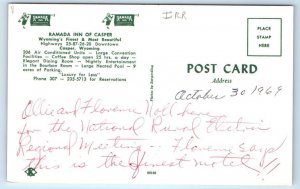 IRR
RAMADA INN OF CASPER
Wyoming's Finest & Most Beautiful
Highways 25-87-26-20 Downtown
Casper, Wyoming
206 Air Conditioned Units - Large Convention
Facilities - Coffee Shop open 25 hrs. a day -
Elegant Dining Room - Nightly Entertainment
in the Bourbon Room - Large Heated Pool - 9
acres of Parking.
"Luxury for Less"
Phone 307 - 235-5713 for Reservations
PLACE
STAMP
HERE
POST CARD
Address
October 30 1969
Ollie and Florence Noll here
for the National Rural Electric
Regional Meeting -- Florence says
this is the finest motel!!